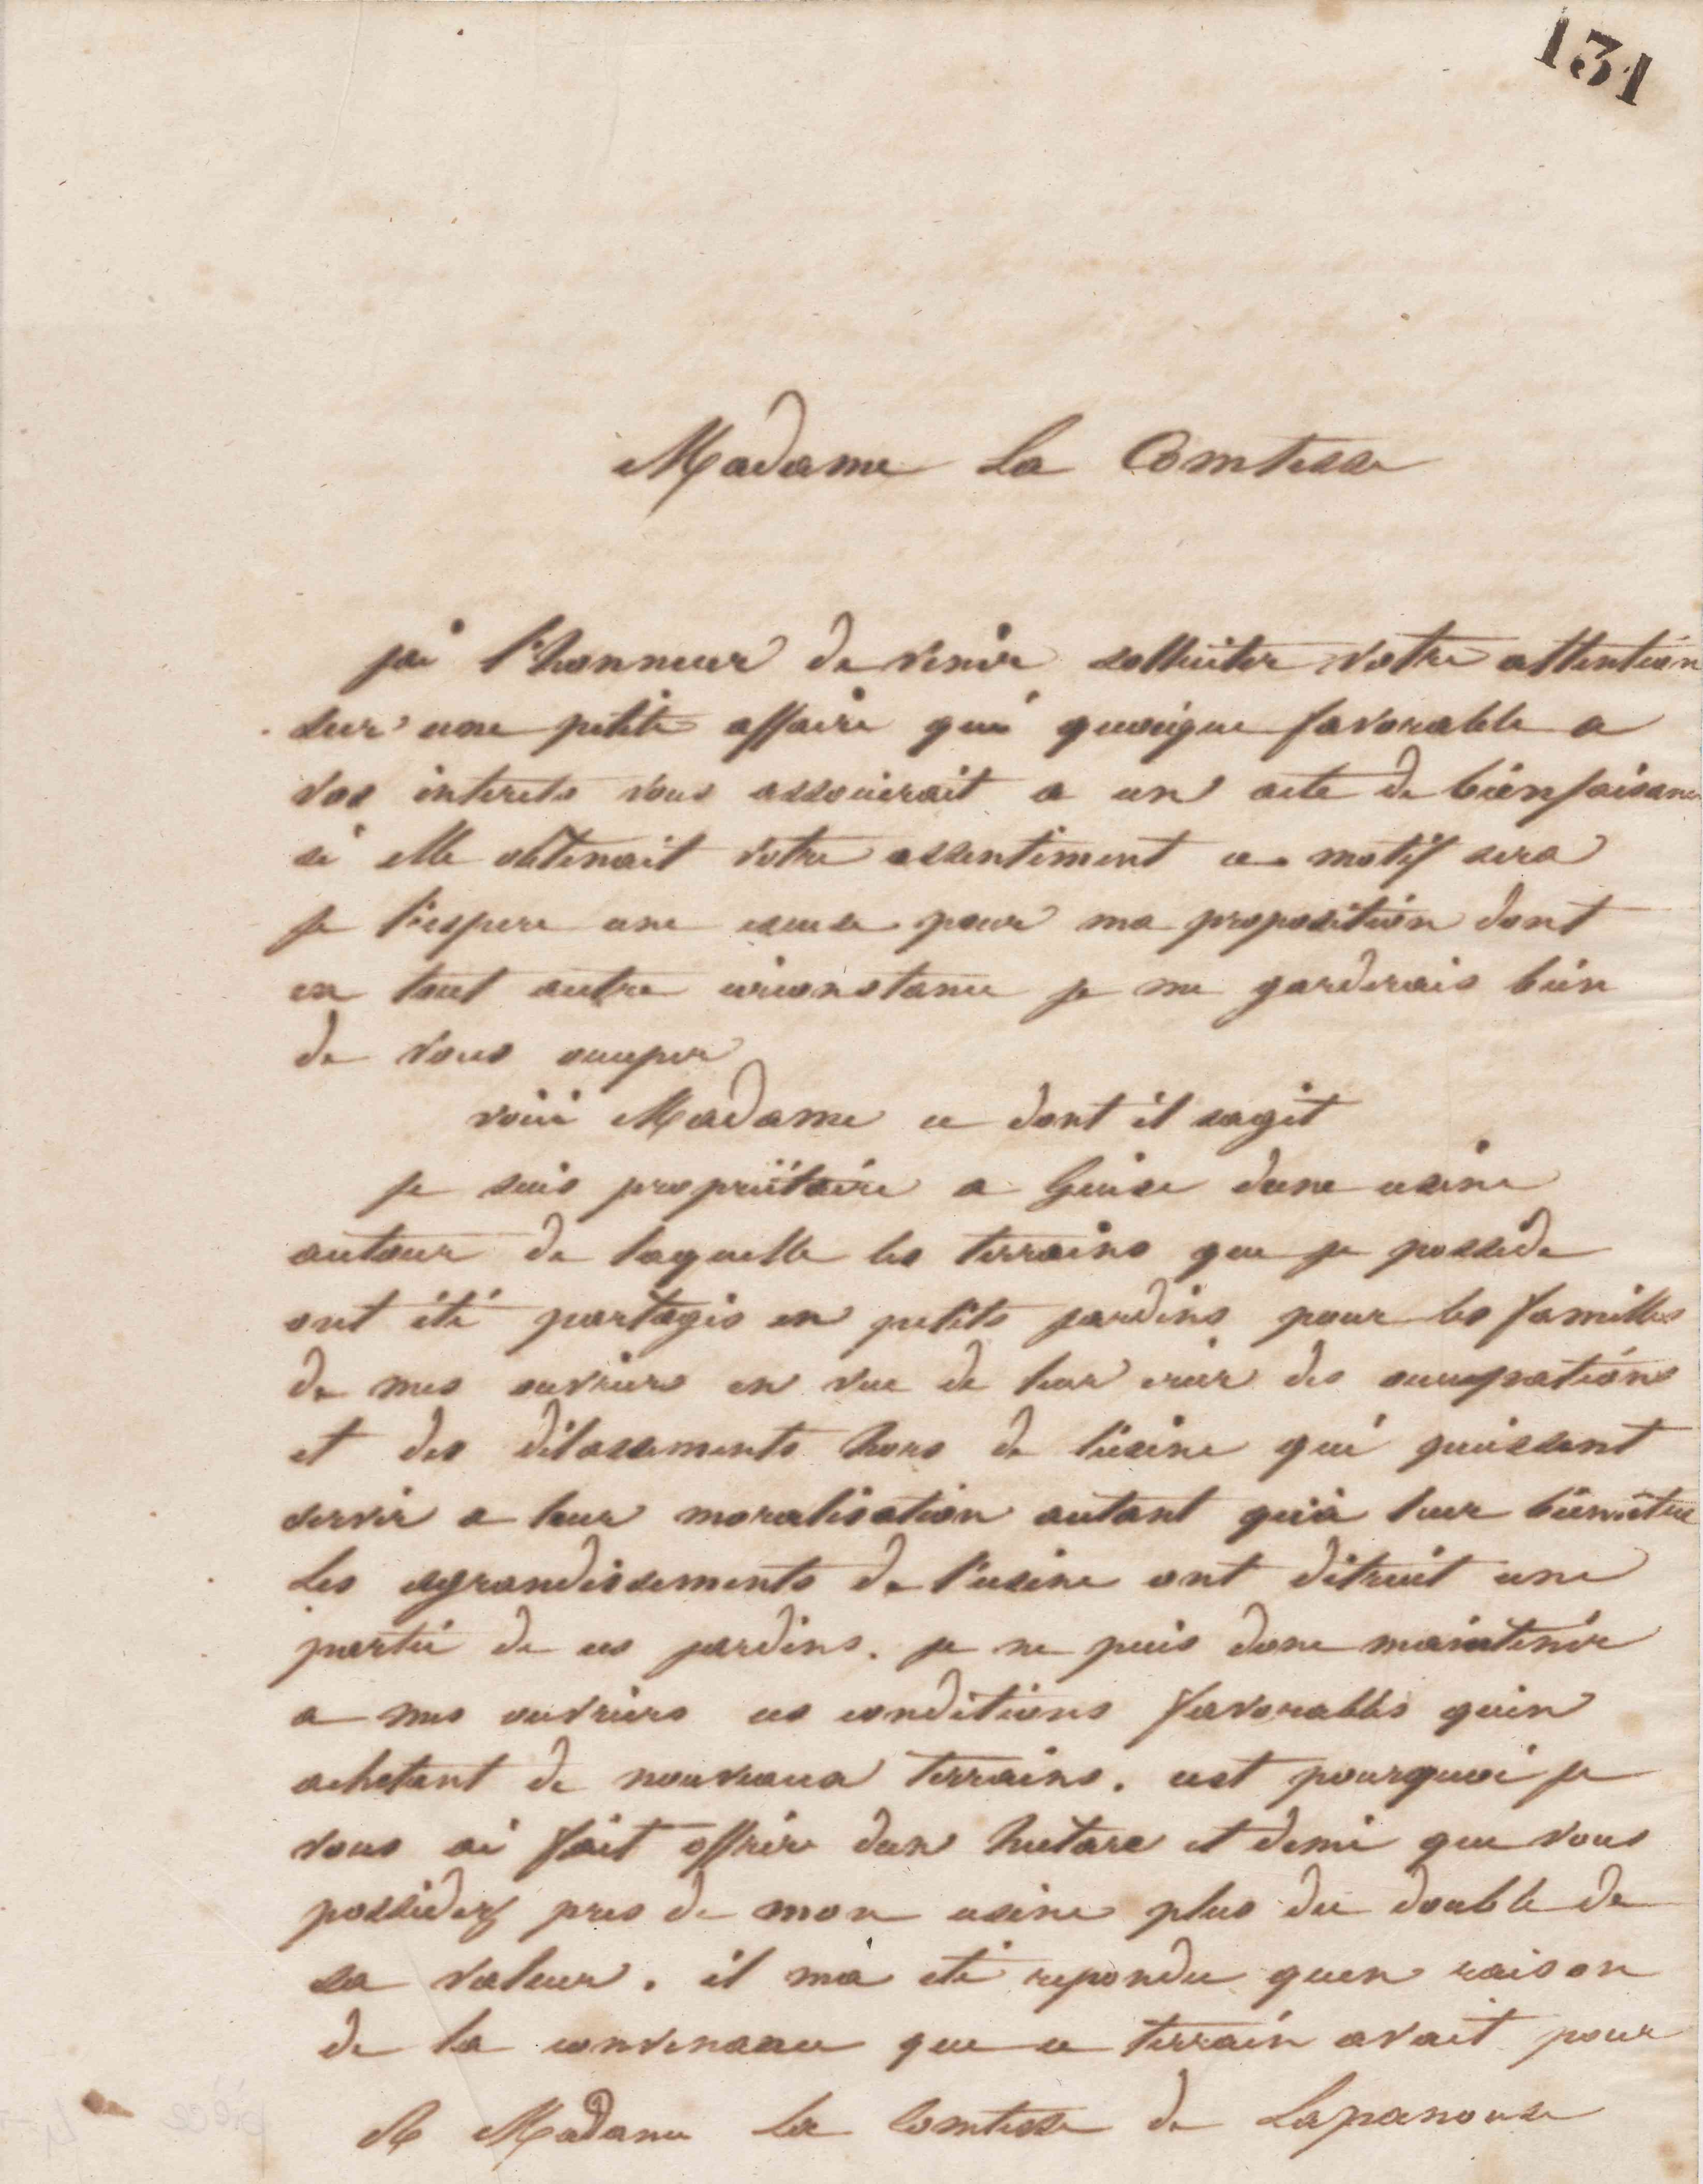 131
Madame La Comtesse
jai l'honneur de venir solliciter votre attention
sur une petite affaire qui quoique favorable a
vos interets vous associerait a un acte de bienfaisance
si elle obtenait votre assentiment ce motif sera
je l'espere une excuse pour ma proposition dont
en tout autre circonstance je me garderais bien
de vous occuper
voici Madame ce dont il sagit
je suis propriétaire a Guise dune usine
autour de laquelle les terrains que je possede
ont été partagés en petits jardins pour les familles
de mes ouvriers en vue de leur créer des occupations
et des délassements hors de l'usine qui puissent
servir a leur moralisation autant qu'à leur bienêtre
Les agrandissements de l'usine ont détruit une
partie de ces jardins. je ne puis donc maintenir
a mes ouvriers ces conditions favorables quen
achetant de nouveaux terrains. cest pourquoi je
vous ai fait offrir dun hectare et demi que vous
possédez pres de mon usine plus du double de
sa valeur. il ma été repondu quen raison
de la convenance que ce terrain avait pour
A Madame la Comtesse de Lapanouse